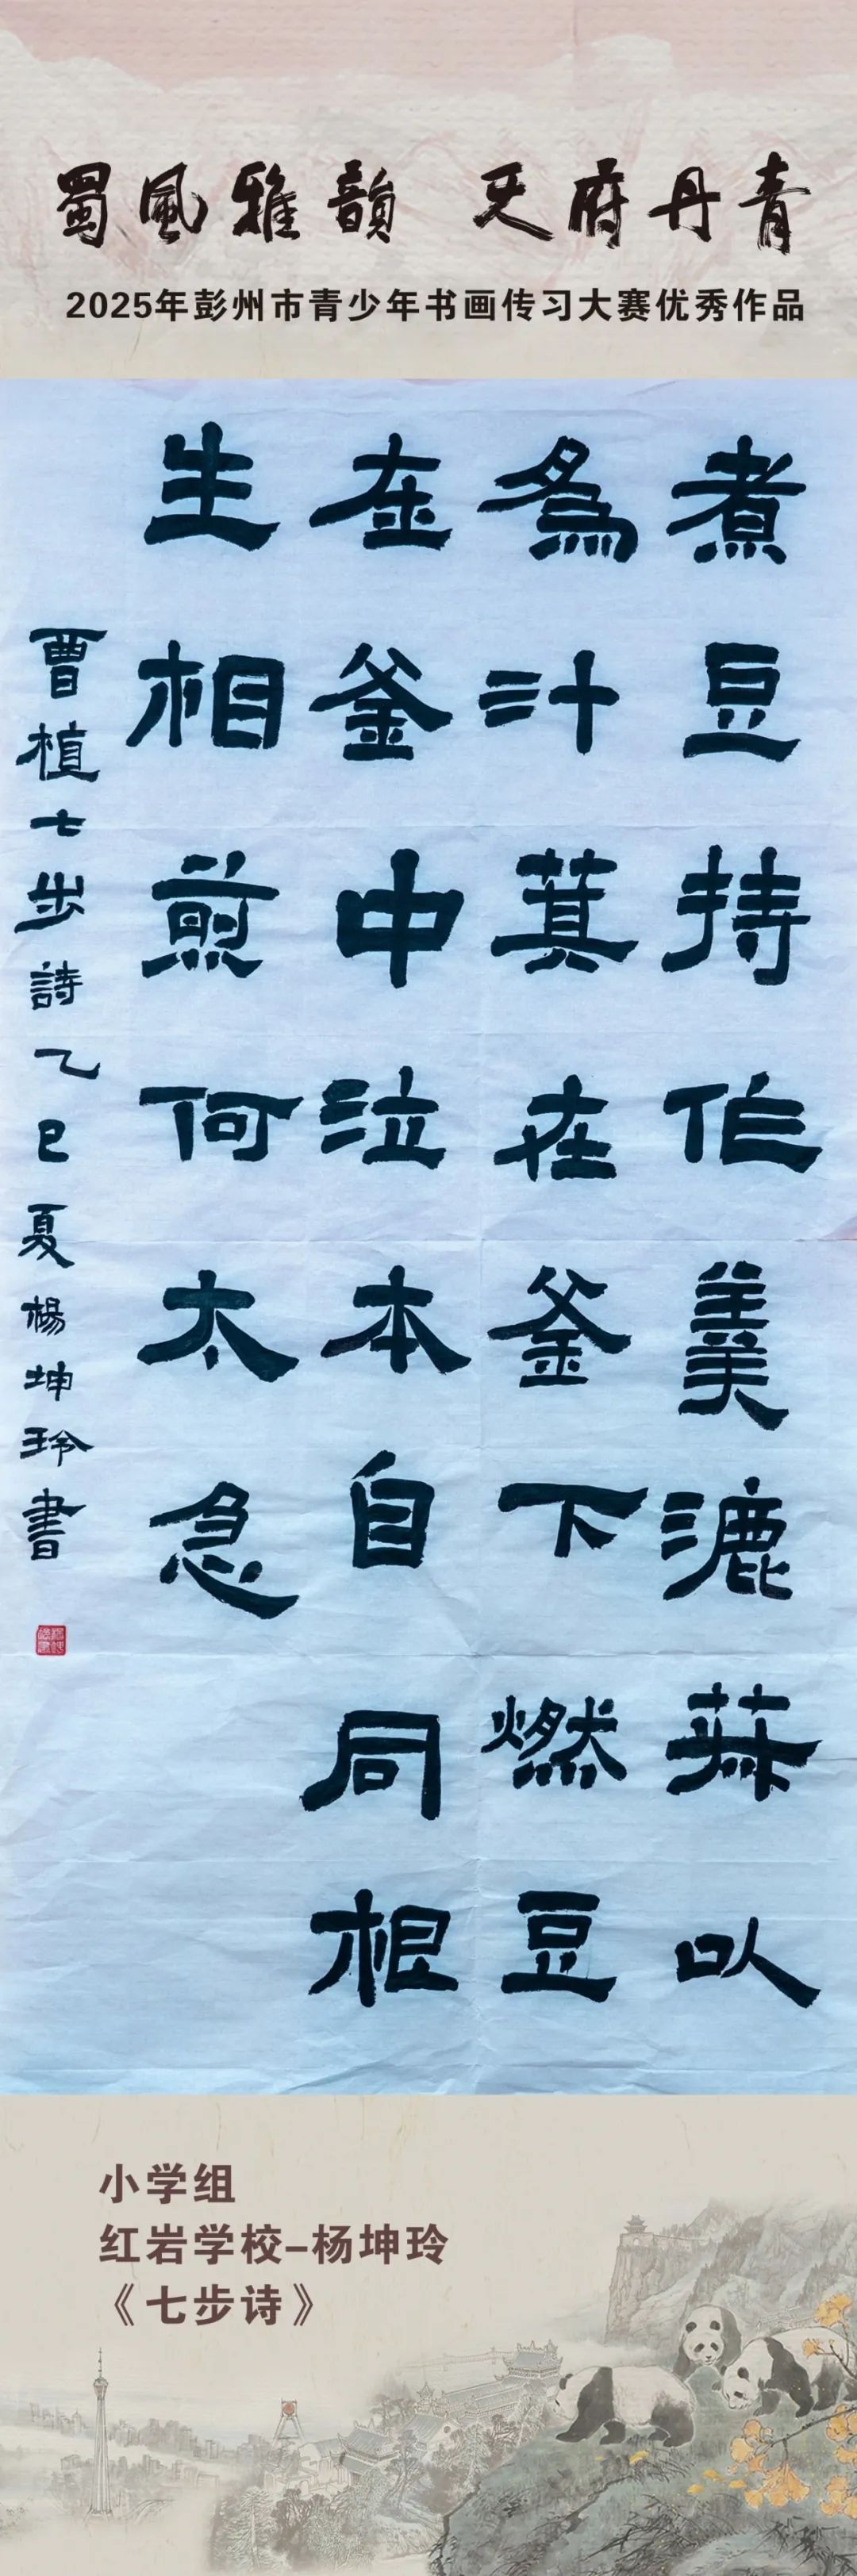 蜀風雅韻 天府丹青
2025年彭州市青少年书画传习大赛优秀作品
煮豆持作羹漉菽以
為汁萁在釜下燃豆
在釜中泣本自同根
生相煎何太急
曹植七步詩乙巳夏楊坤玲書
小学组
红岩学校-杨坤玲
《七步诗》